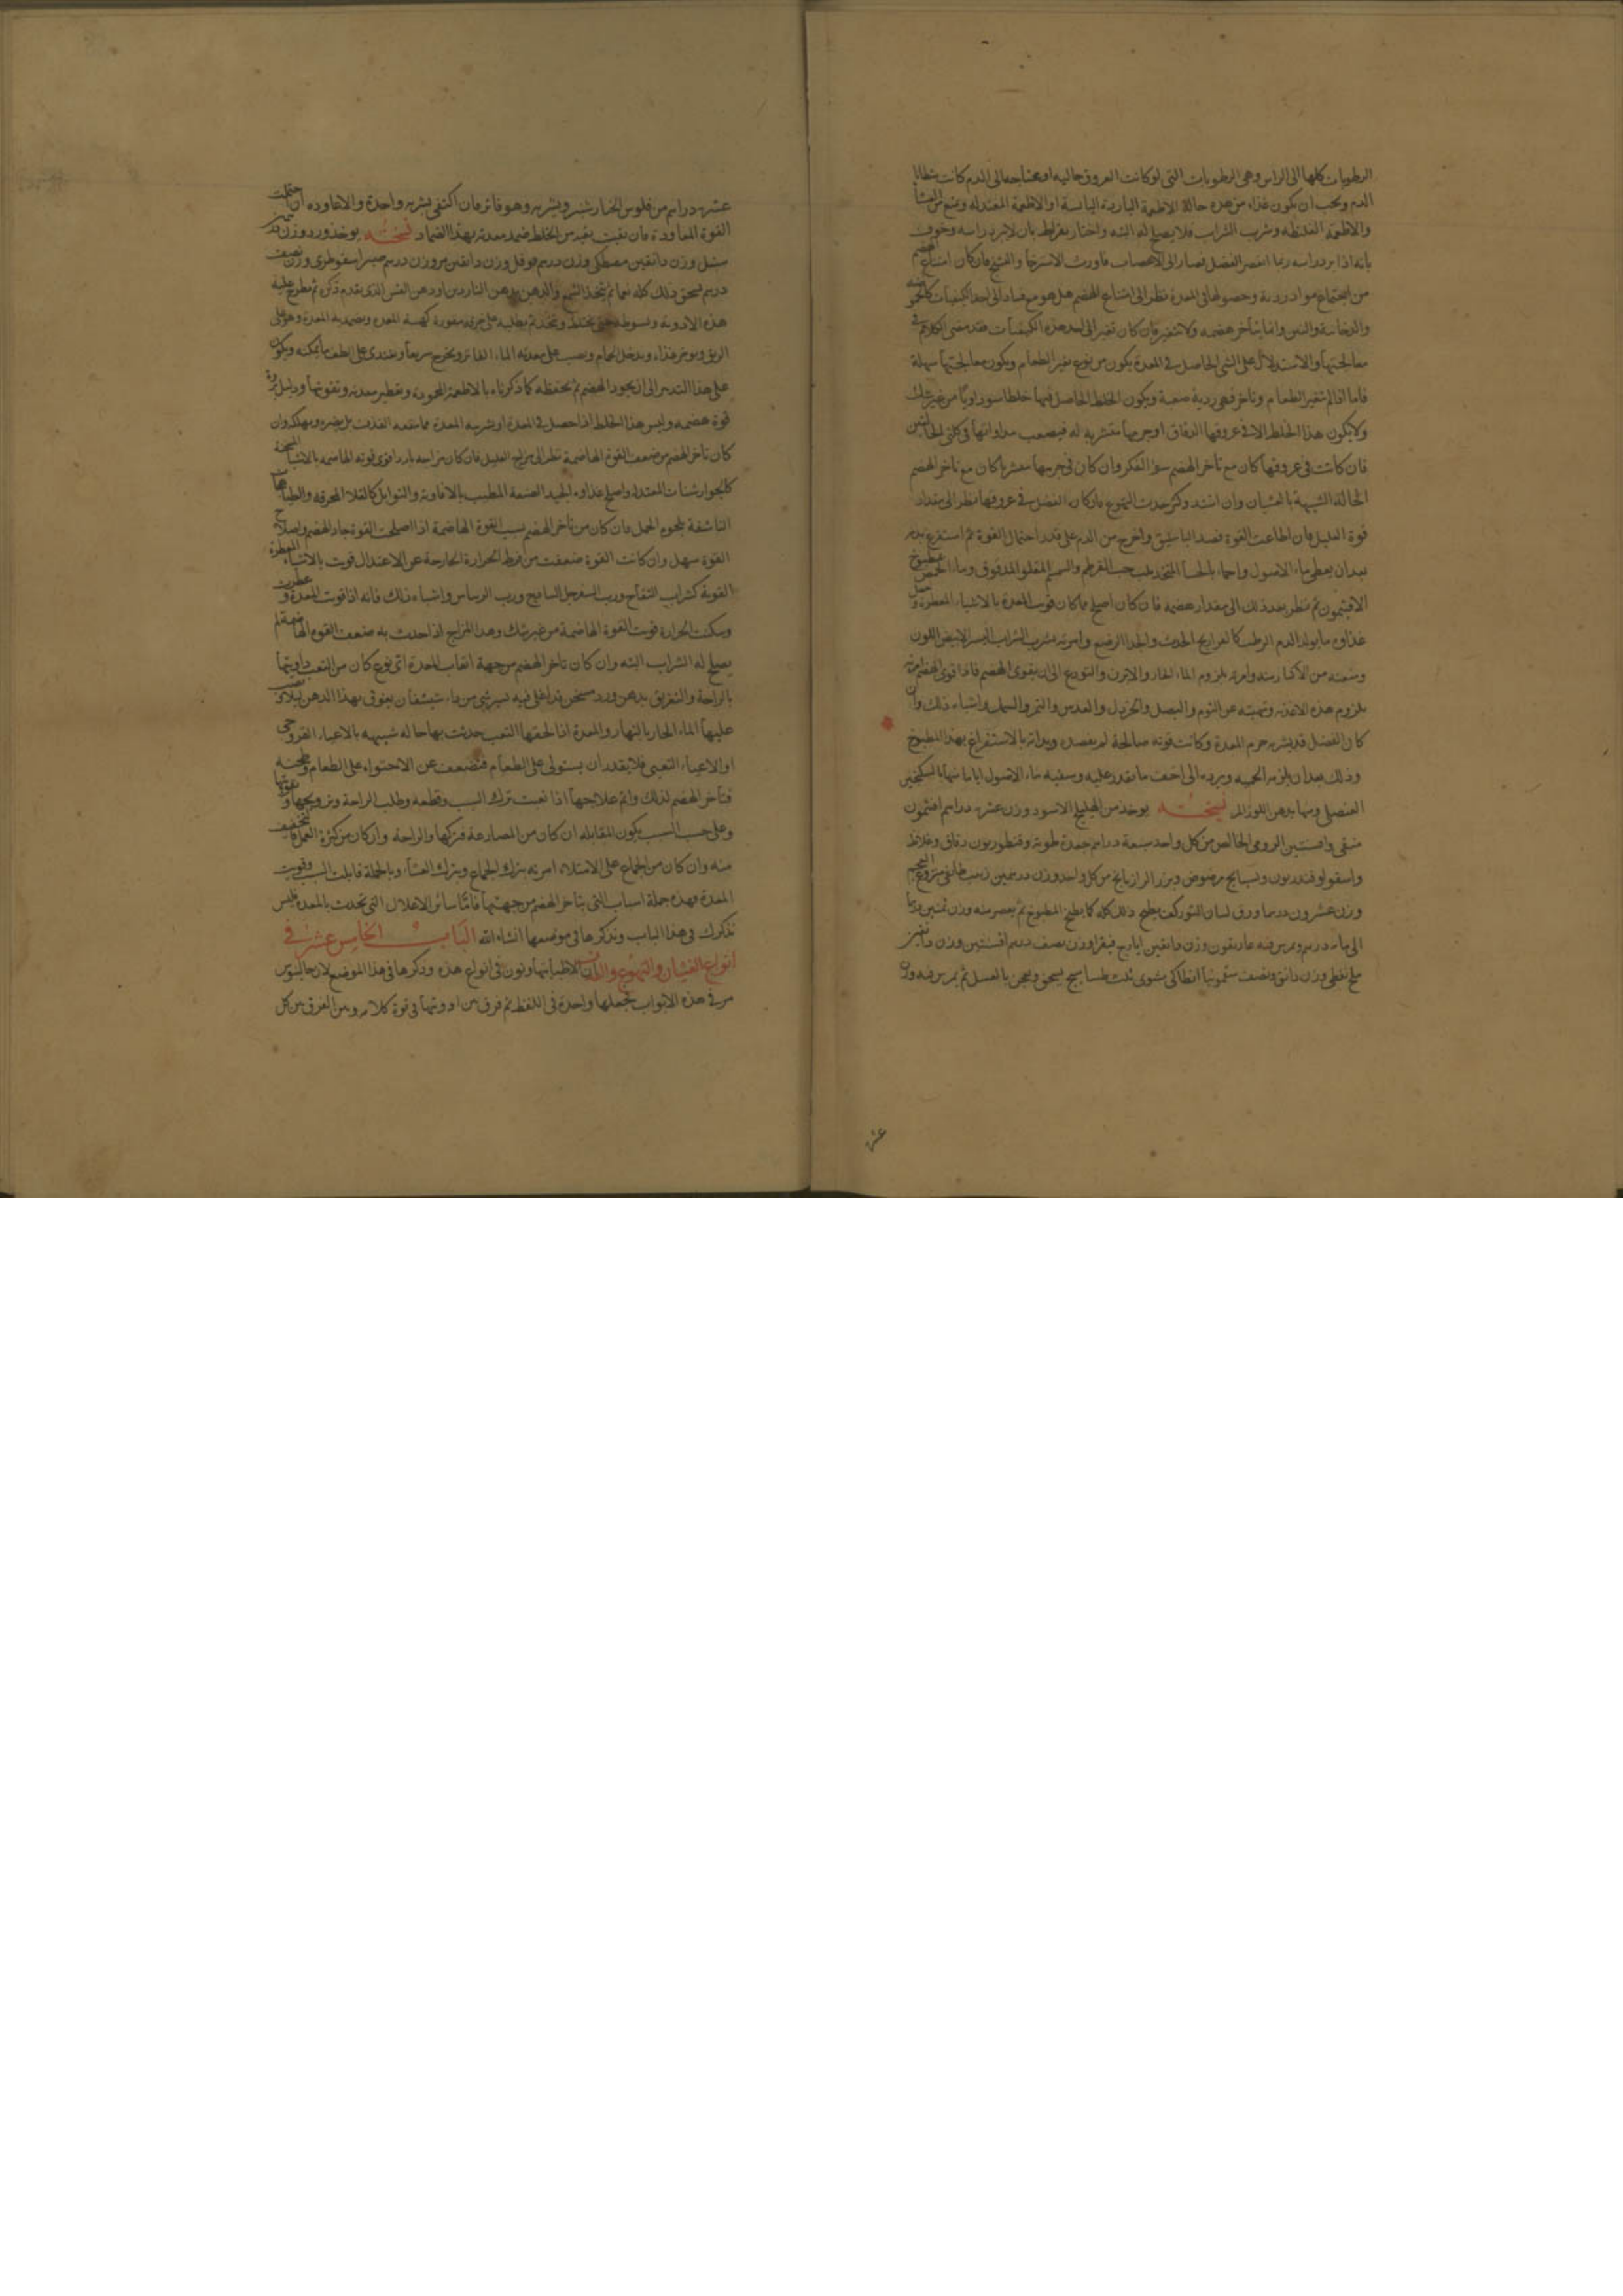 الرطوبات كلها الى الراس وهى الرطوبات التى لو كانت العروق خالية او محتاجة الى الدم كانت
الدم ويجب ان يكون غذاء من هذه حالة الاطعمة الباردة اليابسة او الاطعمة المعتدلة ويمنع من العشا
والاطعمة الغليظة وشرب الشراب فلا يصلح له البته واختار بقراط بان لا يبرد راسه وخوف
بانه اذا برد راسه ربما انعصر الفضل فصار الى الاعصاب فاورث الاسترخا والتشنج فان كان امتناع الهضم
من اجتماع مواد ردية وحصولها فى المعدة نظر الى امتناع الهضم هل هو مع فساد الى احد الكيفيات
والدخانية والنتن وانما يتاخر هضمه ولا يتغير فان كان تغير الى احد هذه الكيفيات فقد مضى الكلام فى
معالجتها والاستدلال على الشى الحاصل فى المعدة يكون من نوع تغير الطعام ويكون معالجتها سهلة
فاما اذا لم يتغير الطعام وتاخر فهى ردية صعبة ويكون الخلط الحاصل فيها خلطا سوداويا من غير شك
ولا يكون هذا الخلط الا فى عروقها الدقاق او جرمها متشربه له فيصعب مداواتها فى كلتى الحالتين
فان كانت فى عروقها كان مع تاخر الهضم سو الفكر وان كان فى جرمها متشربا كان مع تاخر الهضم
الحالة الشبيهة بالغشيان وان اشتد وكثر حدث التهوع فان كان الفضل فى عروقها نظر الى مقدار
قوة العليل فان اطاعت القوة فصد الباسليق واخرج من الدم على قدر احتمال القوة ثم استفرغ بدنه
بعد ان يعطى ماء الاصول واحماه بالحسا المتخذ بلب حب القرطم والسمسم المقلو المدقوق وماء الحمص
الافتيمون ثم نظر بعد ذلك الى مقدار هضمه فان كان اصلح مما كان قويت المعدة بالاشياء العطرة
غذاوه ما يولد الدم الرطب كالفراريج الحدث والجدا الرضيع وامرته بشرب الشراب اليسير الابيض اللون
ومنعته من الاكثار منه وامرته بلزوم الماء الحار والابزن والتودع الى ان يقوى الهضم فاذا قوى الهضم امرته
بلزوم هذه الاغذية وحميته عن الثوم والبصل والخردل والعدس والتمر والسمك واشباه ذلك وان
كان الفضل قد يشربه جرم المعدة وكانت قوته صالحة لم يفصده وبداته بالاستفراغ بهذا المطبوخ
وذلك بعد ان يلزمه الحمية ويرده الى اخف ما يقدر عليه وسقيه ماء الاصول اياما بالسكنجبين
العنصلى بدهن اللوز المر نسخته يوخذ من الهليلج الاسود وزن عشرة دراهم افتيمون
منقى وافسنتين الرومى الخالص من كل واحد سبعة دراهم جعدة وقنطوريون دقاق وغلاظ
واسقولوقندريون وبسبايج مرضوض وبزر الرازيانج من كل واحد وزن درهمين زبيب طايفى منزوع العجم
وزن عشرون درهما ورق لسان الثور كف يطبخ ذلك كله كما يطبخ المطبوخ ثم يعصر منه وزن
الى ماء درهم ويمرس فيه غاريقون وزن دانقين ايارج فيقرا وزن نصف درهم افسنتين وزن دانقين
ملح نفطى وزن دانق ونصف سقمونيا انطاكى مشوى ثلث طسايج يسحق ويعجن بالعسل ثم يمرس فيه وزن
عشرة
عشرة دراهم من فلوس الخيار شنبر ويشربه وهو فاتر فان اكتفى بشربة واحدة والا عاوده ان احتملت
القوة المعاودة فان بقيت بقية من الخلط ضمد معدته بهذا الضماد نسخته يوخذ ورد وزن
سنبل وزن دانقين مصطكى وزن درهم فوفل وزن دانقين مر وزن درهم صبر اسقوطرى وزن نصف
درهم يسحق ذلك كله نعما ثم يتخذ الشمع والدهن بدهن الناردين او دهن الذى تقدم ذكره ثم يطرح عليه
هذه الادوية حتى يختلط ثم يطليه على خرقة مقورة كهيئة المعدة ويضمد به المعدة وهو على
الريق ويوخر غذاه ويدخل الحمام ويصب على معدته الماء الفاتر ويخرج سريعا ويغتذى على الطف ما يمكنه ويكون
على هذا التدبير الى ان يجود الهضم ثم يحفظه كما ذكرناه بالاطعمة المحمودة وتعطير معدته وتقويتها ودليل
قوة هضمه وليس هذا الخلط اذا حصل فى المعدة او تشربه المعدة مما ينفعه القذف بل يضره ويهلكه وان
كان تاخر الهضم من ضعف القوة الهاضمة نظر الى مزاج العليل فان كان مزاجه بارد اقوى قوته الهاضمة بالاشيا
كالجوارشنات المعتدلة واصلح غذاوه الجيد الصنعة المطيب بالافاويه والتوابل كالقلايا المحرقه
الناشفة بلحوم الحمل فان كان من تاخر الهضم بسبب القوة الهاضمة اذا اصلحت القوة جاد الهضم واصلاح
القوة سهل وان كانت القوة ضعفت من فرط الحرارة الخارجة عن الاعتدال قويت بالاشياء العطرة
القوية كشراب التفاح ورب السفرجل الساذج ورب الريباس واشباه ذلك فانه اذا قويت المعدة
وسكنت الحرارة قويت القوة الهاضمة من غير شك وهذا المزاج اذا حدث به ضعف القوة الهاضمة لم
يصلح له الشراب البته وان كان تاخر الهضم من جهة اتعاب المعدة اى نوع كان من التعب داويتها
بالراحة والتعريق بدهن ورد مسخن قد اغلى فيه يسير شى من ماء بهذا الدهن
عليها الماء الحار بالنهار والمعدة اذا لحقها التعب حدثت بها حالة شبيهه بالاعياء القروحى
او الاعياء التعبى فلا يقدر ان يستولى على الطعام فتضعف عن الاحتواء على الطعام
فتاخر الهضم لذلك وانما علاجها اذا تعبت ترك السبب وقطعه وطلب الراحة وترويحها
وعلى حسب السبب يكون المقابلة ان كان من المصارعة فتركها والراحة وان كان من كثرة العمل
منه وان كان من الجماع على الامتلاء امرته بترك الجماع وبترك العشا وبالجملة قابلت السبب وقويت
المعدة فهذه جملة اسباب التى يتاخر الهضم من جهتها فاما سائر الاعلال التى تحدث بالمعدة فليس
نذكرك فى هذا الباب ونذكرها فى موضعها انشاء الله الباب الخامس عشر فى
انواع الغشيان والتهوع الاطبا يتهاونون فى انواع هذه وذكرها فى هذا الموضع لان جالينوس
مر فى هذه الابواب فجعلها واحدة فى اللفظ ثم فرق بين ادويتها فى قوة كلامه وبين الفرق بين كل